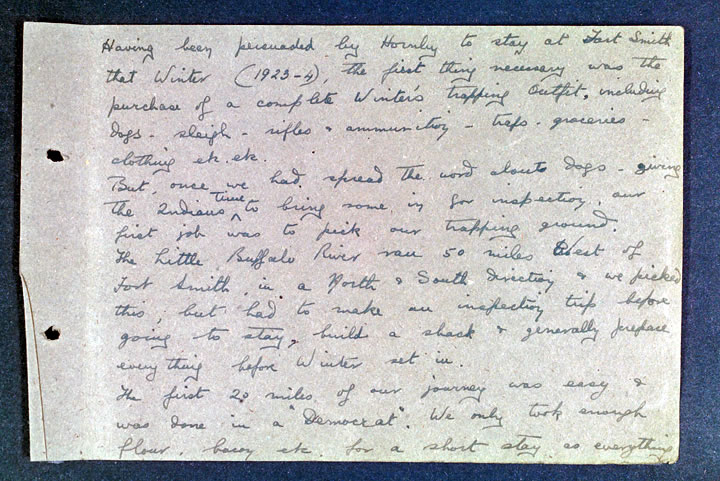 Having been persuaded by Hornby to stay at Fort Smith
that Winter (1923-4), the first thing necessary was the
purchase of a complete Winter's trapping Outfit, including
dogs - sleigh - rifles & ammunition - traps - groceries -
clothing etc. etc.
But, once we had spread the word about dogs - giving
the Indians time to bring some in for inspection, our
first job was to pick our trapping ground.
The Little Buffalo River ran 50 miles West of
Fort Smith, in a North & South direction & we picked
this; but had to make an inspection trip before
going to stay, build a shack & generally prepare
everything before Winter set in.
The first 20 miles of our journey was easy &
was done in a "Democrat". We only took enough
flour, bacon etc. for a short stay as everything